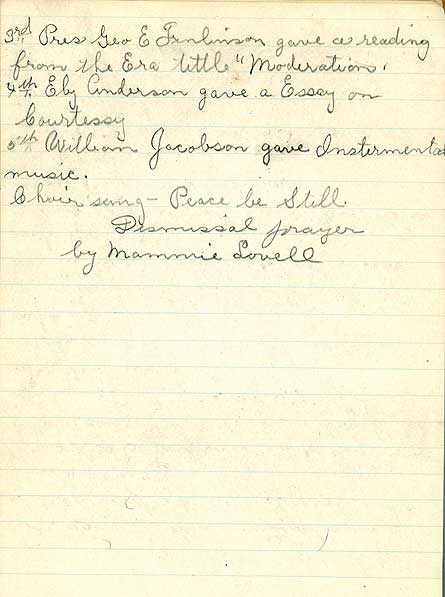 3rd Pres Geo E Tomlinson gave a reading
from the Era tittle "Moderation.
4th Eby Anderson gave a Essay on
Courtessy
5th William Jacobson gave Insturmental
music.
Choir sang - Peace be Still.
Dismissal prayer
by Mammie Lovell